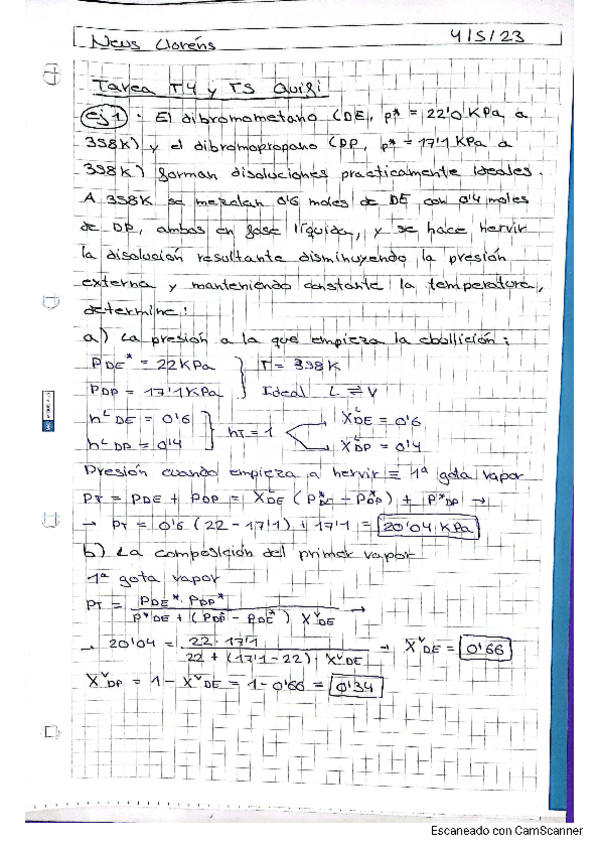 Neus Lloréns 4/5/23
Tarea T4 y T5 Quifi
ej 1. El dibromometano (DE, p* = 22'0 KPa a
398K) y el dibromopropano (DP, p* = 17'1 KPa a
398K) forman disoluciones practicamente ideales.
A 398K se mezclan 0'6 moles de DE con 0'4 moles
de DP, ambos en fase líquida, y se hace hervir
la disolución resultante disminuyendo la presión
externa y manteniendo constante la temperatura,
determine:
a) La presión a la que empieza la ebullición:
PDE* = 22 KPa } T = 398K
PDP = 17'1 KPa } Ideal L ⇌ V
n^L DE = 0'6 } nT = 1 X^L DE = 0'6
n^L DP = 0'4 X^L DP = 0'4
Presión cuando empieza a hervir ≡ 1ª gota vapor
PT = PDE + PDP = X^L DE (P*DE - P*DP) + P*DP →
→ PT = 0'6 (22 - 17'1) + 17'1 = 20'04 KPa
b) La composición del primer vapor
1ª gota vapor
PT = PDE* · PDP* / P*DE + (PDP* - PDE*) X^V DE →
→ 20'04 = 22 · 17'1 / 22 + (17'1 - 22) · X^V DE → X^V DE = 0'66
X^V DP = 1 - X^V DE = 1 - 0'66 = 0'34
Escaneado con CamScanner